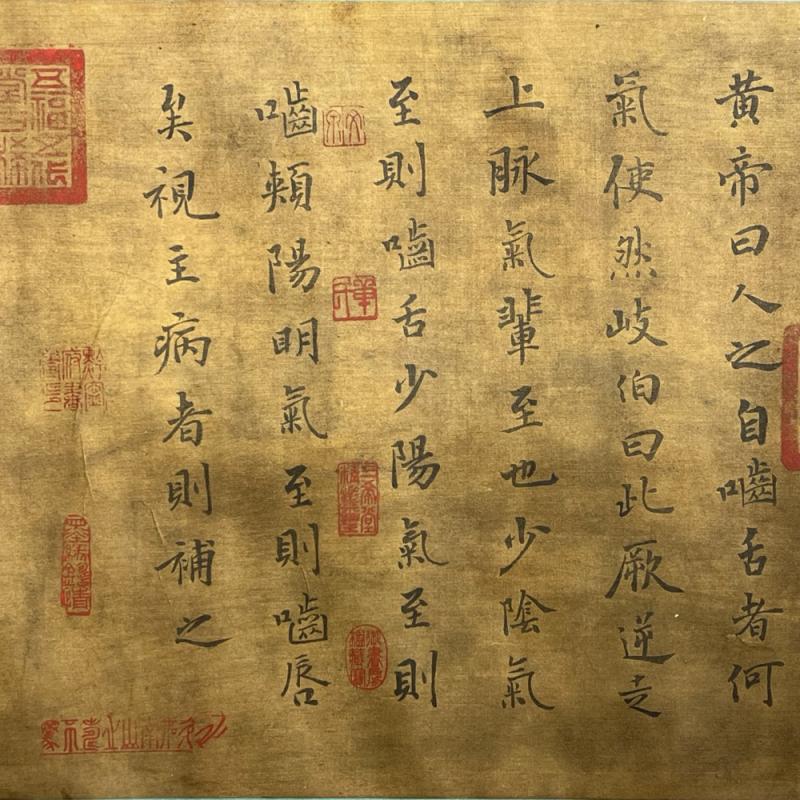 黄帝曰人之自嚙舌者何
氣使然岐伯曰此厥逆走
上脉氣輩至也少陰氣
至則嚙舌少陽氣至則
嚙頰陽明氣至則嚙唇
矣視主病者則補之